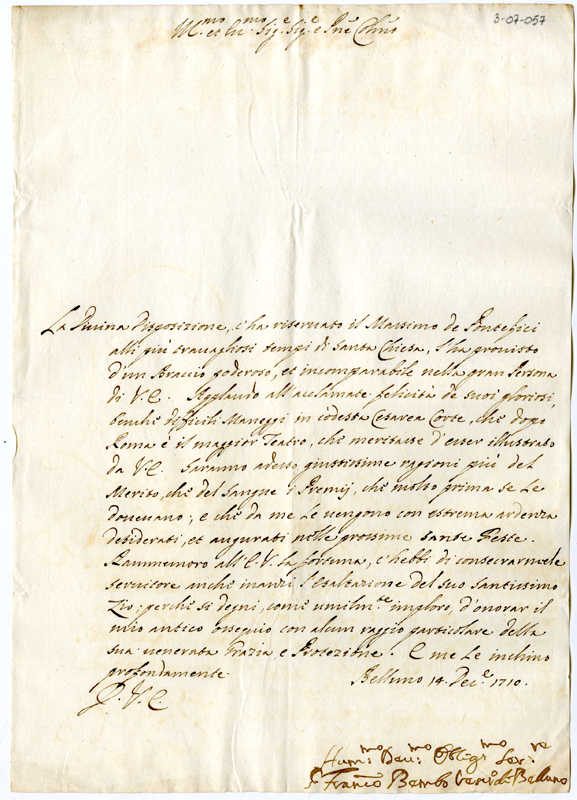 3-07-057
Ill.mo et Ecc.mo Sig.e Sig.e e Prñe Col͂mo
La Divina Disposizione, c'ha riservato il Massimo de Pontefici
alli più travagliosi tempi di Santa Chiesa, l'ha provisto
d'un Braccio poderoso, et incomparabile nella gran Persona
di V.E. Applaudo all'acclamate felicità de suoi gloriosi,
benche difficili Maneggi in codesta Cesarea Corte, che dopo
Roma è il maggior Teatro, che meritasse d'esser illustrato
da V.E. Saranno adesso giustissime ragioni più del
Merito, che del Sangue i Premij, che molto prima se Le
dovevano; e che da me Le vengono con estrema ardenza
desiderati, et augurati nelle prossime sante Feste.
Rammemoro all'E.V. la fortuna, c'hebbi di consecrarmele
servitore anche inanzi l'esaltazione del suo Santissimo
Zio; perche si degni, come umilm.te imploro, d'onorar il
mio antico ossequio con alcun raggio particolare della
sua venerata Grazia, e Protezione. E me Le inchino
profondamente. Belluno 14. Dec.e 1710.
D. V. E.
Hum.mo Dev.mo Oblig.mo Ser.re
F. Franc.o Bembo Vesc.o di Belluno